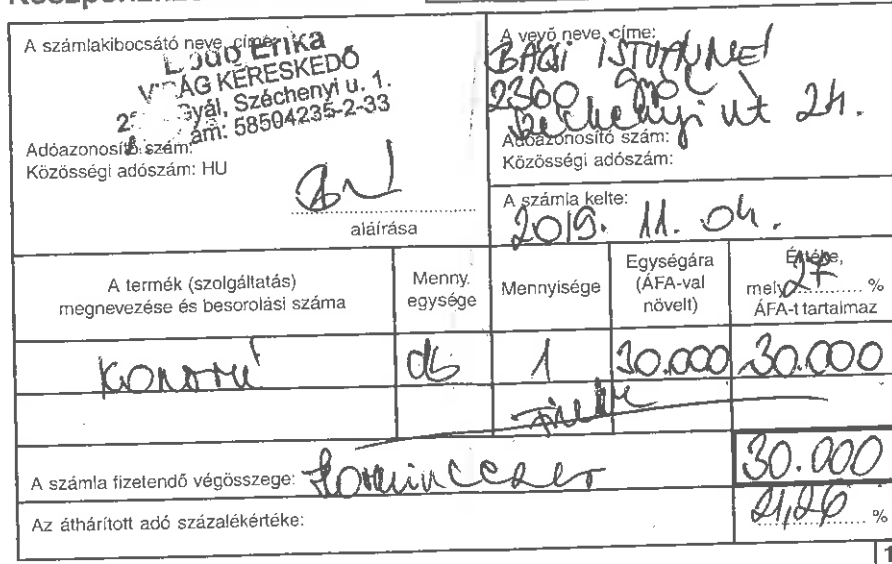 A számlakibocsátó neve, címe:
Erika
VIRÁG KERESKEDŐ
Gyál, Széchenyi u. 1.
58504235-2-33
Adóazonosító szám:
Közösségi adószám: HU
aláírása
A vevő neve, címe:
BAGI ISTVÁNNÉ
2360 Gyál
Széchenyi út 24.
Adóazonosító szám:
Közösségi adószám:
A számla kelte:
2019. 11. 04.
A termék (szolgáltatás)
megnevezése és besorolási száma
Menny.
egysége
Mennyisége
Egységára
(ÁFA-val
növelt)
Értéke,
mely 27 %
ÁFA-t tartalmaz
KOSZORÚ
db
1
30.000
30.000
A számla fizetendő végösszege: Harmincezer
30.000
Az áthárított adó százalékértéke:
21,26 %
1